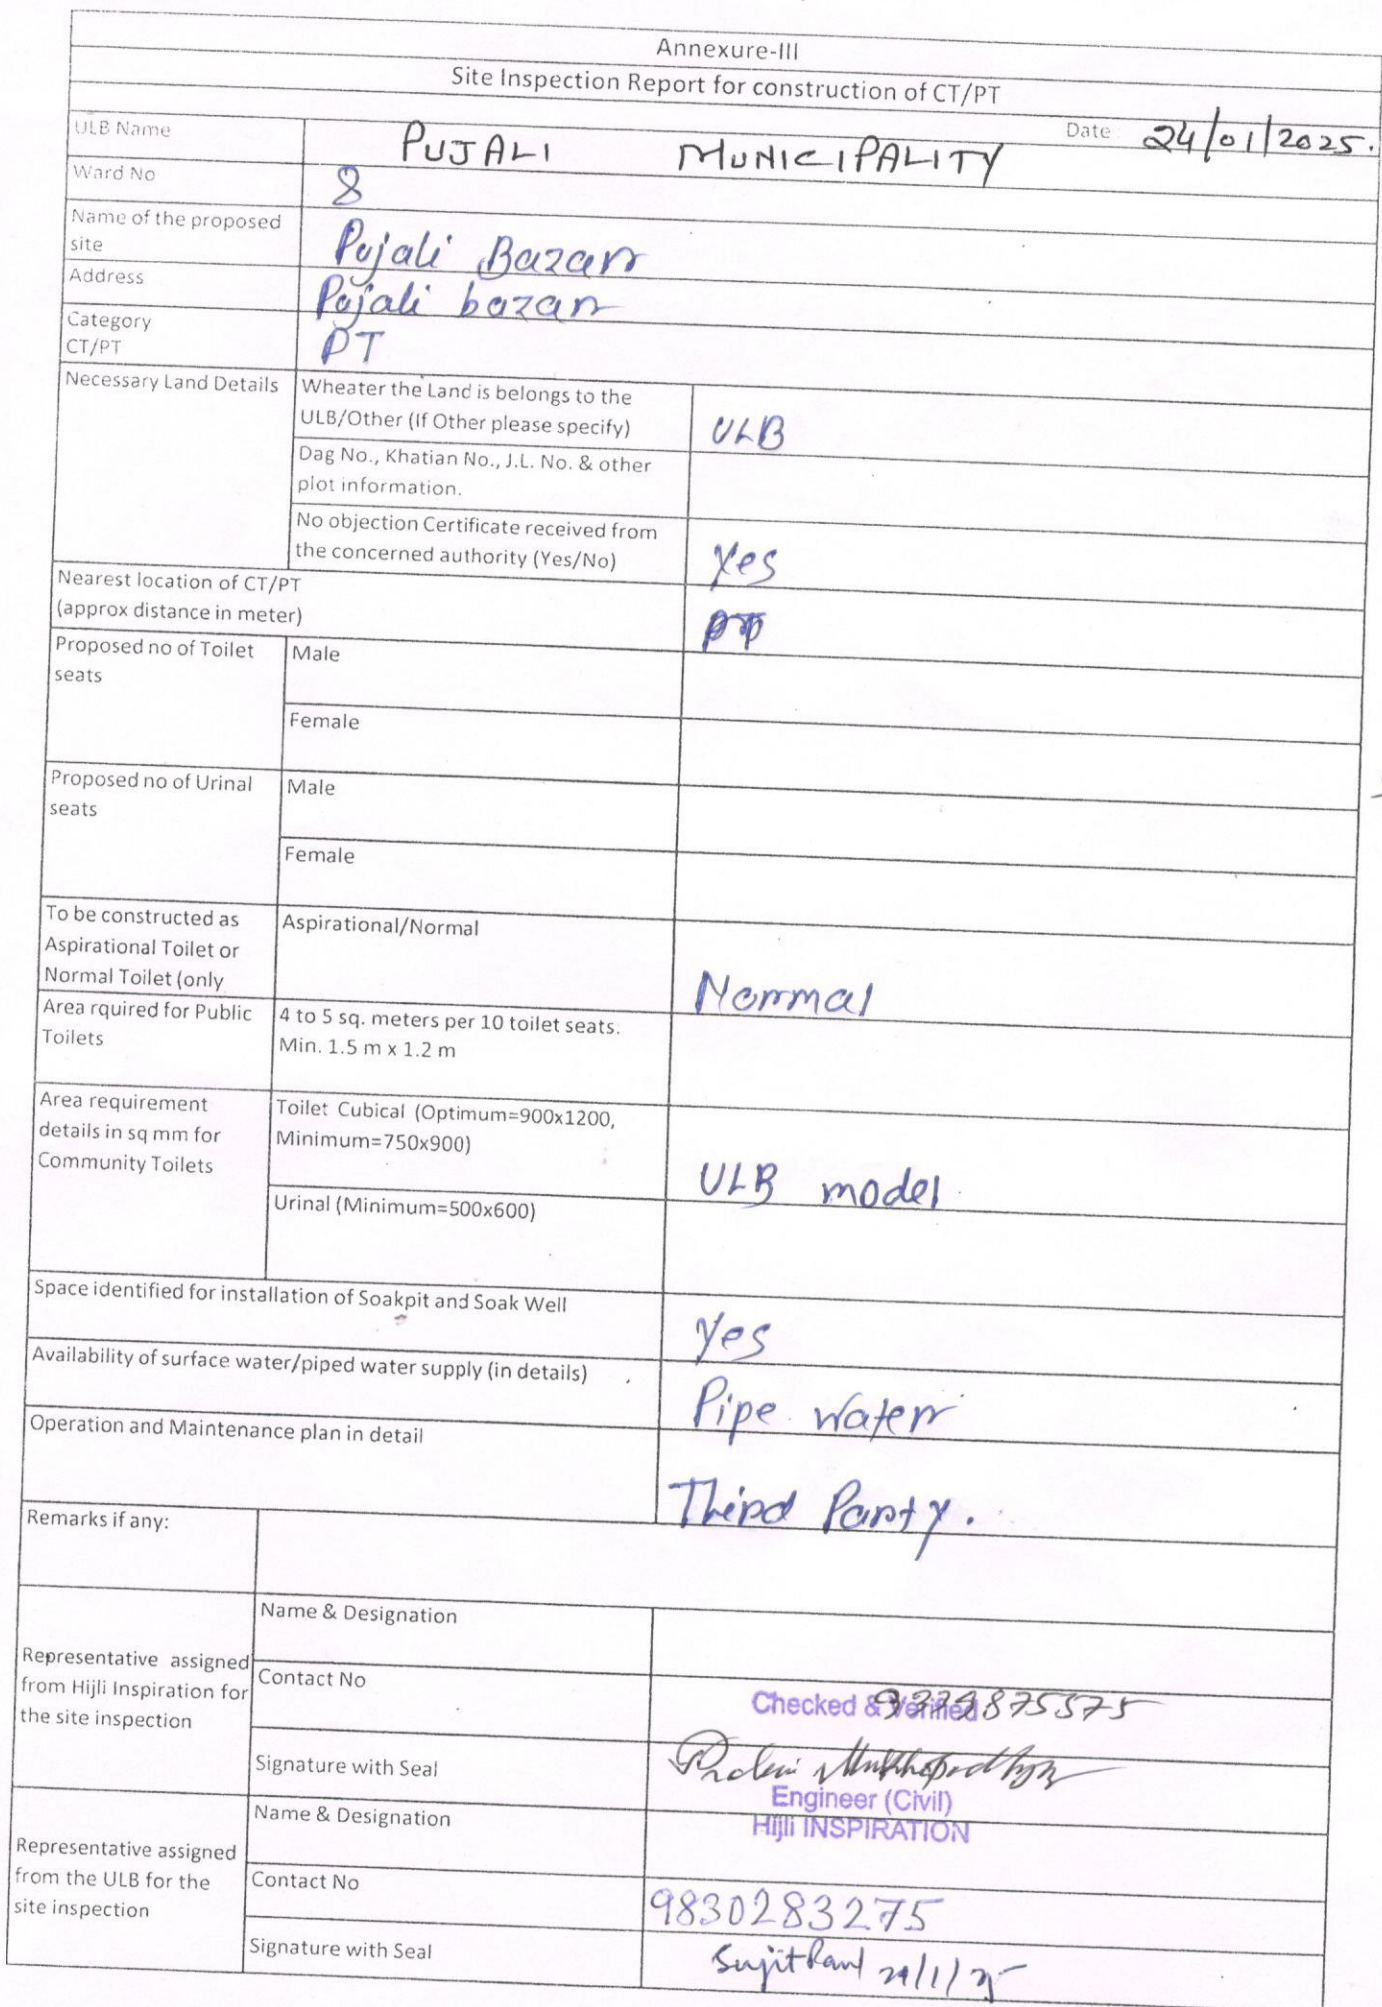 Annexure-III
Site Inspection Report for construction of CT/PT
Date 24/01/2025.
ULB Name PUJALI MUNICIPALITY
Ward No 8
Name of the proposed
site Pujali Bazar
Address Pujali bazar
Category
CT/PT PT
Necessary Land Details Wheater the Land is belongs to the
ULB/Other (If Other please specify) ULB
Dag No., Khatian No., J.L. No. & other
plot information.
No objection Certificate received from
the concerned authority (Yes/No) Yes
Nearest location of CT/PT
(approx distance in meter) PT
Proposed no of Toilet
seats
Male
Female
Proposed no of Urinal
seats
Male
Female
To be constructed as
Aspirational Toilet or
Normal Toilet (only
Aspirational/Normal
Normal
Area rquired for Public
Toilets
4 to 5 sq. meters per 10 toilet seats.
Min. 1.5 m x 1.2 m
Area requirement
details in sq mm for
Community Toilets
Toilet Cubical (Optimum=900x1200,
Minimum=750x900)
ULB model
Urinal (Minimum=500x600)
Space identified for installation of Soakpit and Soak Well Yes
Availability of surface water/piped water supply (in details) Pipe water
Operation and Maintenance plan in detail
Third Party.
Remarks if any:
Representative assigned
from Hijli Inspiration for
the site inspection
Name & Designation
Contact No
Checked & Verified
Signature with Seal
Engineer (Civil)
Hijli INSPIRATION
Representative assigned
from the ULB for the
site inspection
Name & Designation
Contact No 9830283275
Signature with Seal Sujit